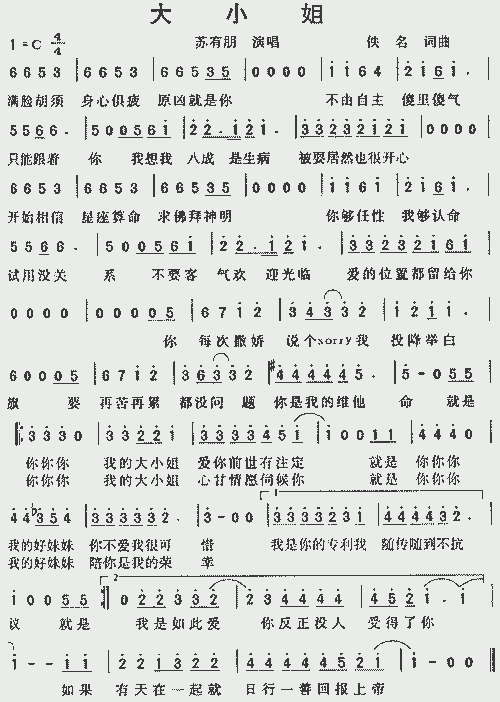 大 小 姐
1=C 4/4 苏有朋 演唱 佚 名 词曲
6 6 5 3 | 6 6 5 3 | 6 6 5 3 5 | 0 0 0 0 | 1 1 6 4 | 2 1 6 1 . |
满脸胡须 身心俱疲 原凶就是你 不由自主 傻里傻气
5 5 6 6 . | 5 0 0 5 6 1 | 2 2 . 1 2 1 . | 3 3 2 3 2 1 2 1 | 0 0 0 0 |
只能跟着 你 我想我 八成 是生病 被耍居然也很开心
6 6 5 3 | 6 6 5 3 | 6 6 5 3 5 | 0 0 0 0 | 1 1 6 1 | 2 1 6 1 . |
开始相信 星座算命 求佛拜神明 你够任性 我够认命
5 5 6 6 . | 5 0 0 5 6 1 | 2 2 . 1 2 1 . | 3 3 2 3 2 1 6 1 |
试用没关 系 不要客 气欢 迎光临 爱的位置都留给你
0 0 0 0 | 0 0 0 0 5 | 6 7 1 2 | 3 4 3 3 2 | 1 2 1 1 . |
你 每次撒娇 说个sorry我 投降举白
6 0 0 0 5 | 6 7 1 2 | 3 6 3 3 2 | #4 4 4 4 4 5 . | 5 - 0 5 5 |
旗 要 再苦再累 都没问 题 你是我的维他 命 就是
3 3 3 0 | 3 3 2 2 1 | 3 3 3 3 4 5 1 | 1 0 0 1 1 | 4 4 4 0 |
你你你 我的大小姐 爱你前世有注定 就是 你你你
你你你 我的大小姐 心甘情愿伺候你 就是 你你你
4 4 b3 5 4 | 3 3 3 3 3 2 . | 3 - 0 0 | 1 3 3 3 3 2 3 1 | 4 4 4 4 3 2 . |
我的好妹妹 你不爱我很可 惜 我是你的专利我 随传随到不抗
我的好妹妹 陪你是我的荣 幸
1 0 0 5 5 :| 2 0 2 2 3 3 2 | 2 3 4 4 4 4 | 4 5 2 1 . 1 |
议 就是 我是如此爱 你反正没人 受得了你
1 - - 1 1 | 2 2 1 3 2 2 | 4 4 4 4 4 5 2 1 | 1 - - - ||
如果 有天在一起就 日行一善回报上帝